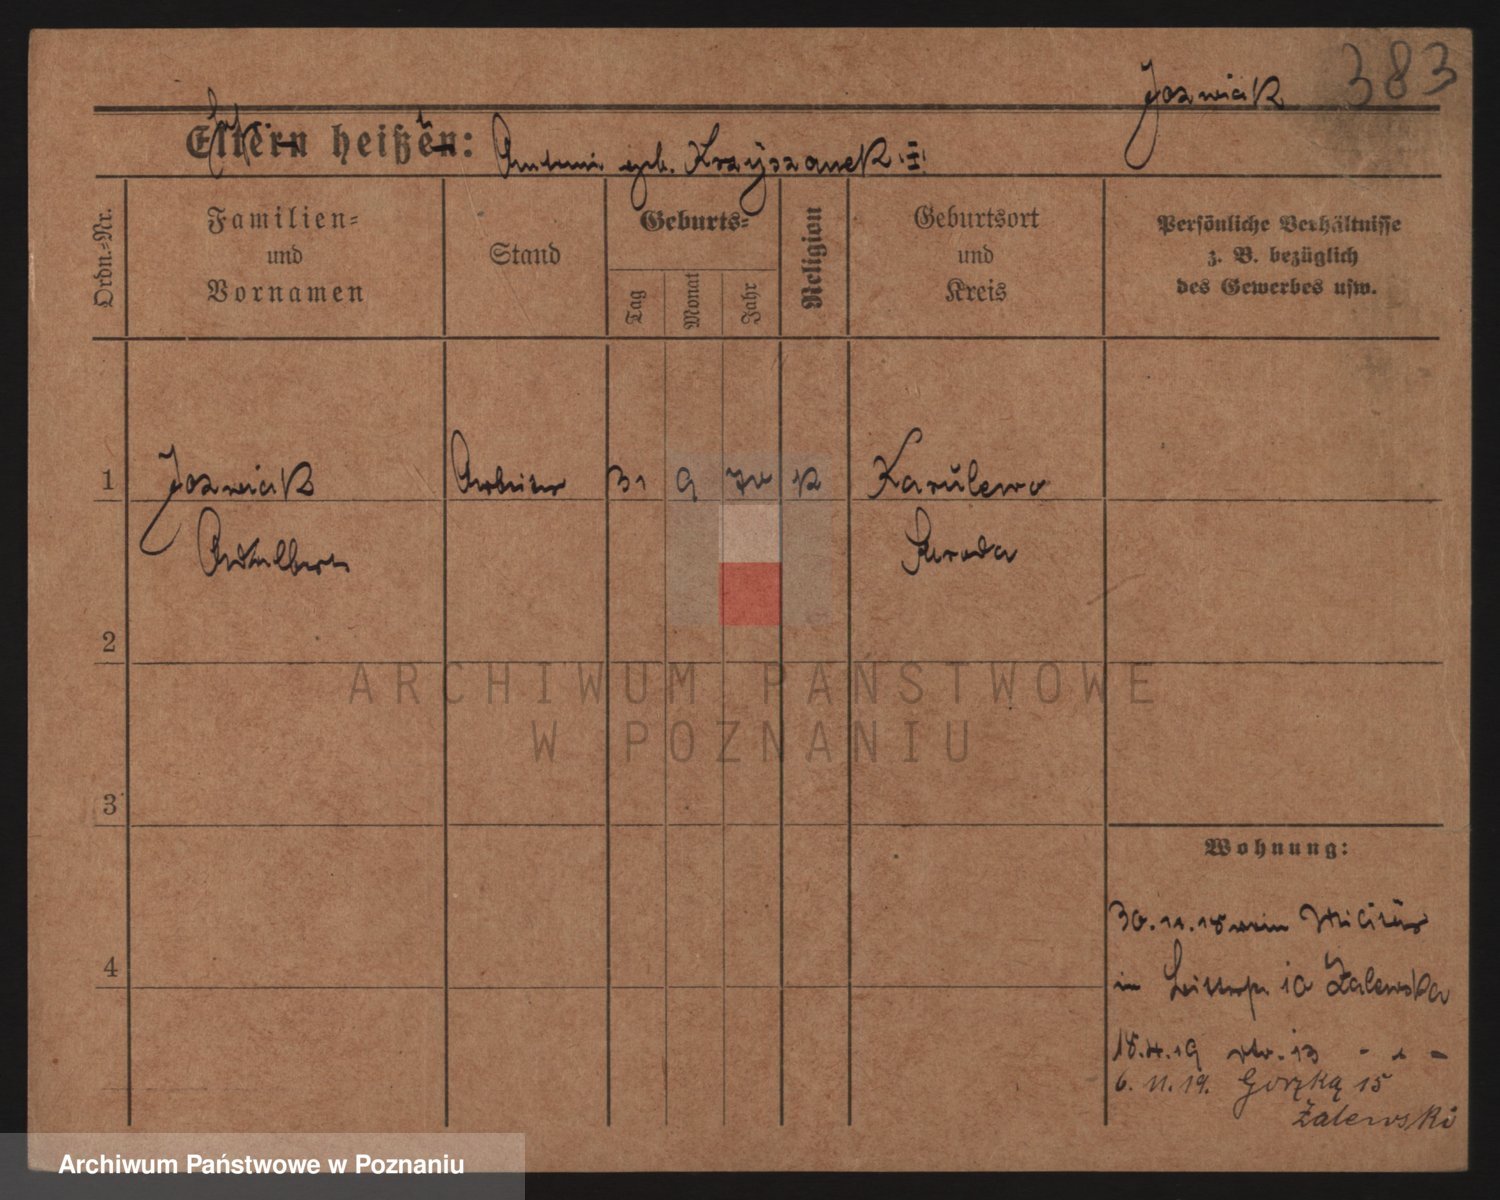 383
Jozwiak
Eltern heißen: geb.
Ordn.-Nr.
Familien-
und
Vornamen
Stand
Geburts-
Tag
Monat
Jahr
Religion
Geburtsort
und
Kreis
Persönliche Verhältnisse
z. B. bezüglich
des Gewerbes usw.
1 Jozwiak Arbeiter 31 9 k
2
3
ARCHIWUM PAŃSTWOWE
W POZNANIU
Wohnung:
30.11.18 vom Militär
4
in 10 Zalewska
18.4.19 13
6.11.19. Gorzką 15
Żalewski
Archiwum Państwowe w Poznaniu